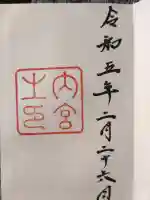 令和五年二月二十六日
内宮
之印